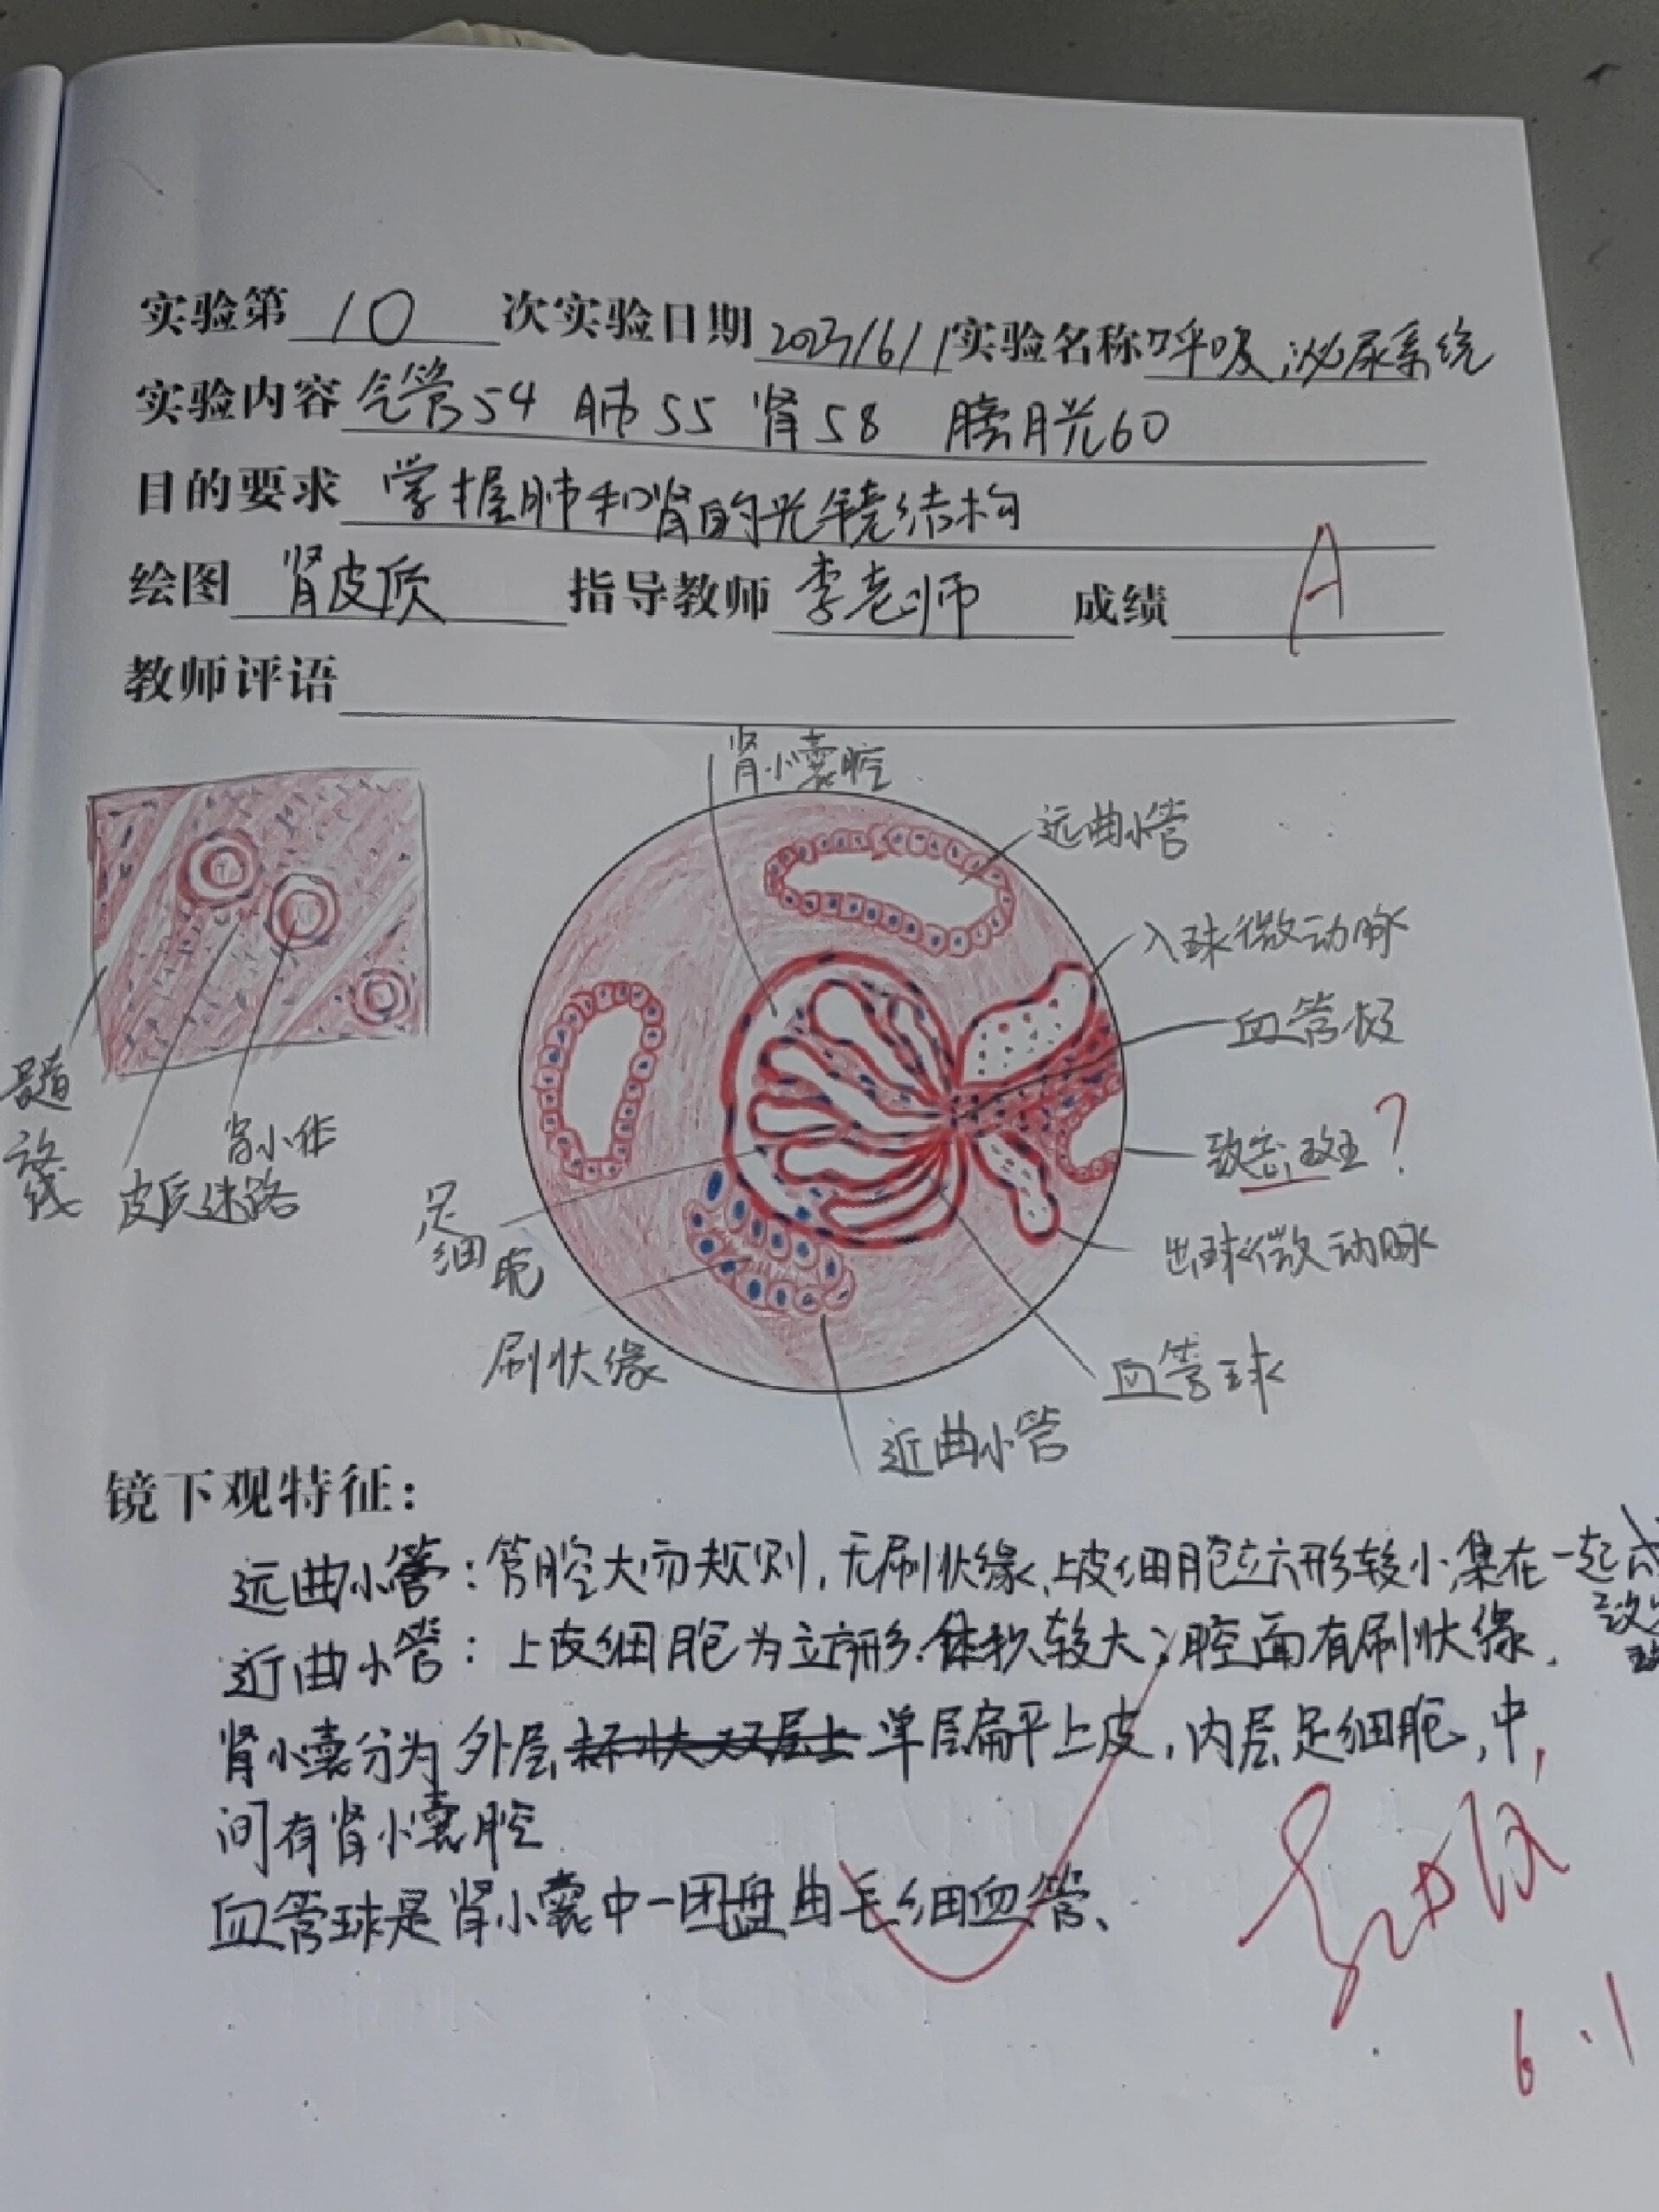 实验第 10 次实验日期 2023/6/1 实验名称 呼吸 泌尿系统
实验内容 气管54 肺55 肾58 膀胱60
目的要求 掌握肺和肾的光镜结构
绘图 肾皮质 指导教师 李老师 成绩 A
教师评语
肾小囊腔
远曲小管
入球微动脉
血管极
致密斑?
出球微动脉
血管球
近曲小管
刷状缘
足细胞
髓放线
皮质迷路
肾小体
镜下观特征:
远曲小管:管腔大而规则,无刷状缘,上皮细胞立方形较小,集在一起
近曲小管:上皮细胞为立方形.体积较大;腔面有刷状缘.
肾小囊分为 外层 单层扁平上皮,内层足细胞,中
间有肾小囊腔
血管球是肾小囊中一团盘曲毛细血管、
6.1